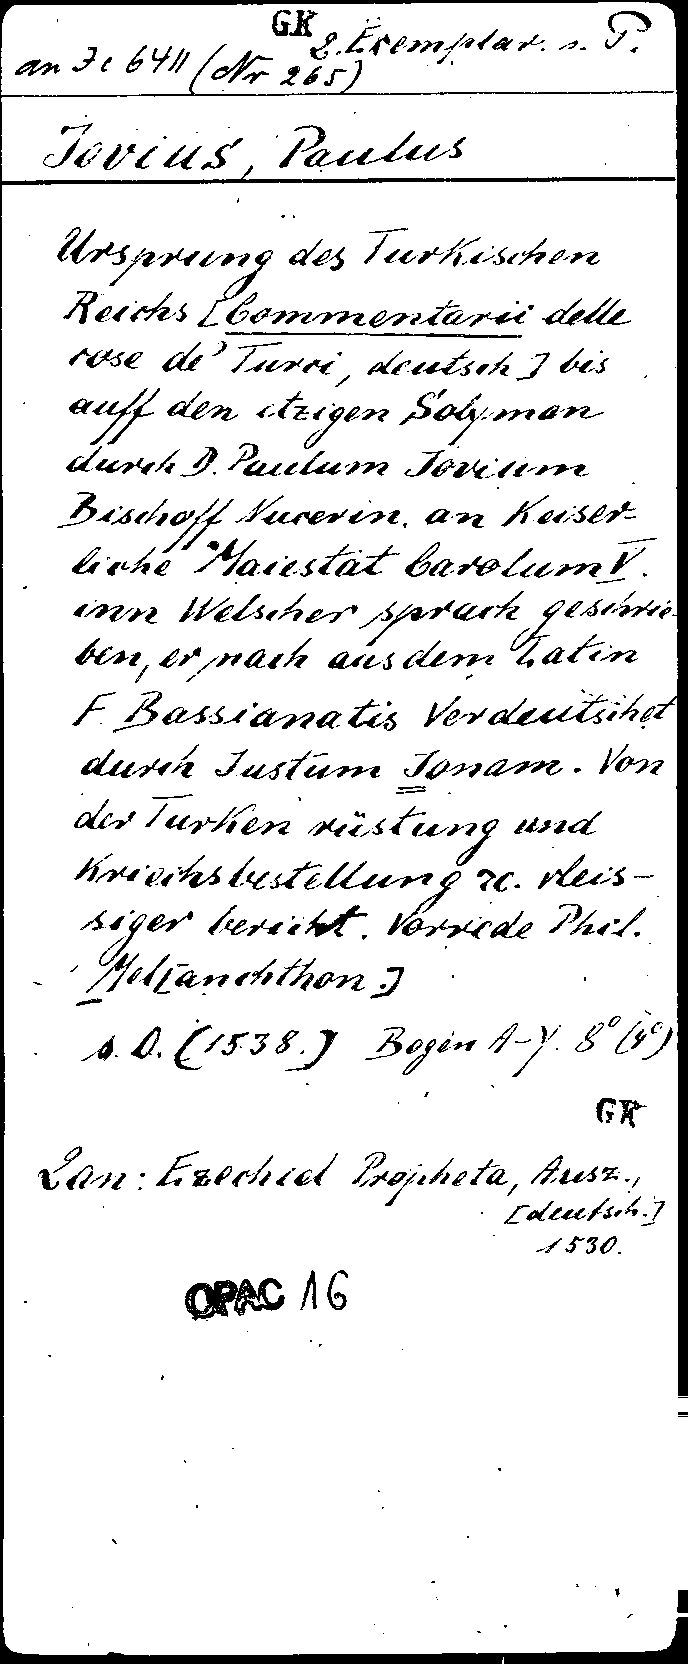 GK
2. Exemplar. s. P.
an Ic 6411 (Nr 265)
Jovius, Paulus
Ursprung des Turkischen
Reichs [Commentarii delle
cose de' Turci, deutsch] bis
auff den itzigen Solyman
durch D. Paulum Jovium
Bischoff Nucerin. an Keiser-
liche Maiestät Carolum V.
inn Welscher sprach geschrie-
ben, er nach aus dem Latin
F. Bassianatis Verdeutschet
durch Justum Jonam. Von
der Turken rüstung und
Kriechsbestellung 2c. vleis-
siger bericht. Vorrede Phil.
Mel[anchthon.]
s. O. (1538.) Bogen A-Y. 8° (4°)
GK
2an: Ezechiel Propheta, Ausz.,
[deutsch.]
1530.
OPAC 16